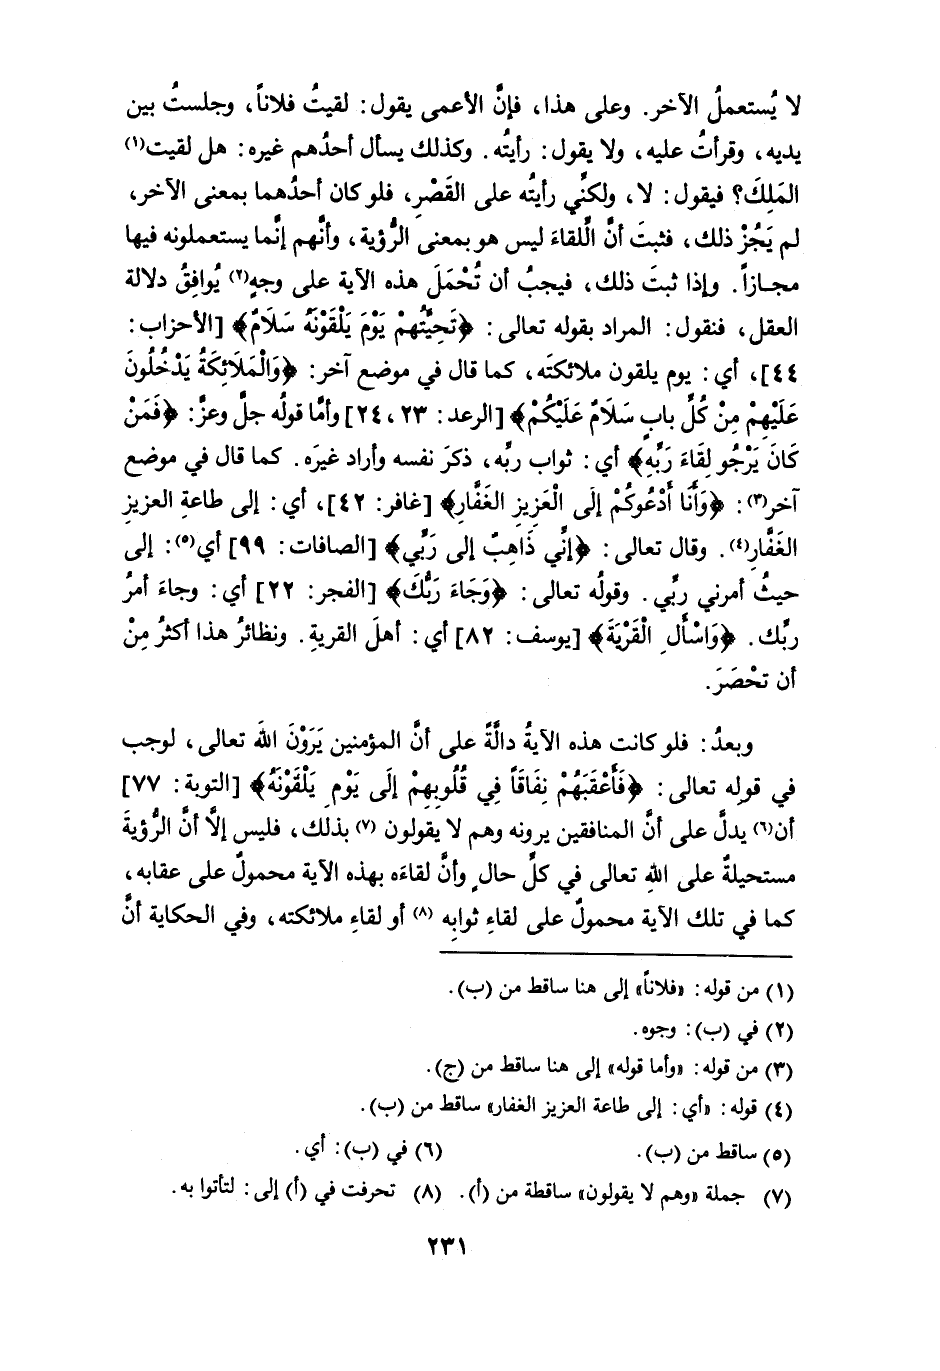 لا يُستعملُ الآخر. وعلى هذا، فإنَّ الأعمى يقول: لقيتُ فلاناً، وجلستُ بين
يديه، وقرأتُ عليه، ولا يقول: رأيتُه. وكذلك يسأل أحدُهم غيره: هل لقيت(١)
المَلِكَ؟ فيقول: لا، ولكنِّي رأيتُه على القَصْرِ، فلو كان أحدُهما بمعنى الآخر،
لم يَجُزْ ذلك، فثبتَ أنَّ اللقاءَ ليس هو بمعنى الرُّؤية، وأنَّهم إنَّما يستعملونه فيها
مجازاً. وإذا ثبتَ ذلك، فيجبُ أن تُحْمَلَ هذه الآية على وجهٍ(٢) يُوافِقُ دلالة
العقل، فنقول: المراد بقوله تعالى: ﴿تَحِيَّتُهمْ يَوْمَ يَلْقَوْنَهُ سَلَامٌ﴾ [الأحزاب:
٤٤]، أي: يوم يلقون ملائكتَه، كما قال في موضع آخر: ﴿وَالْمَلَائِكَةُ يَدْخُلُونَ
عَلَيْهِمْ مِنْ كُلِّ بابٍ سَلَامٌ عَلَيْكُمْ﴾ [الرعد: ٢٣، ٢٤] وأمَّا قولُه جلَّ وعزَّ: ﴿فَمَنْ
كَانَ يَرْجُو لِقَاءَ رَبِّهِ﴾ أي: ثواب ربِّه، ذكرَ نفسه وأراد غيرَه. كما قال في موضع
آخر(٣): ﴿وَأَنَا أَدْعُوكُمْ إلَى الْعَزِيزِ الغَفَّارِ﴾ [غافر: ٤٢]، أي: إلى طاعةِ العزيزِ
الغَفَّارِ(٤). وقال تعالى: ﴿إنِّي ذَاهِبٌ إلى رَبِّي﴾ [الصافات: ٩٩] أي(٥): إلى
حيثُ أمرني ربِّي. وقولُه تعالى: ﴿وَجَاءَ رَبُّكَ﴾ [الفجر: ٢٢] أي: وجاءَ أمرُ
ربِّك. ﴿وَاسْأَلِ الْقَرْيَةَ﴾ [يوسف: ٨٢] أي: أهلَ القريةِ. ونظائرُ هذا أكثرُ مِنْ
أن تحْصَرَ.
وبعدُ: فلو كانت هذه الآيةُ دالَّةً على أنَّ المؤمنين يَرَوْنَ اللهَ تعالى، لوجب
في قولِه تعالى: ﴿فَأَعْقَبَهُمْ نِفَاقَاً فِي قُلُوبِهِمْ إلَى يَوْمِ يَلْقَوْنَهُ﴾ [التوبة: ٧٧]
أن(٦) يدلَّ على أنَّ المنافقين يرونه وهم لا يقولون(٧) بذلك، فليس إلَّا أنَّ الرُّؤيةَ
مستحيلةٌ على اللهِ تعالى في كلِّ حالٍ وأنَّ لقاءَه بهذه الآية محمولٌ على عقابه،
كما في تلك الآية محمولٌ على لقاءِ ثوابِه(٨) أو لقاءِ ملائكته، وفي الحكاية أنَّ
(١) من قوله: «فلاناً» إلى هنا ساقط من (ب).
(٢) في (ب): وجوه.
(٣) من قوله: «وأما قوله» إلى هنا ساقط من (ج).
(٤) قوله: «أي: إلى طاعة العزيز الغفار» ساقط من (ب).
(٥) ساقط من (ب). (٦) في (ب): أي.
(٧) جملة «وهم لا يقولون» ساقطة من (أ). (٨) تحرفت في (أ) إلى: لتأتوا به.
٢٣١